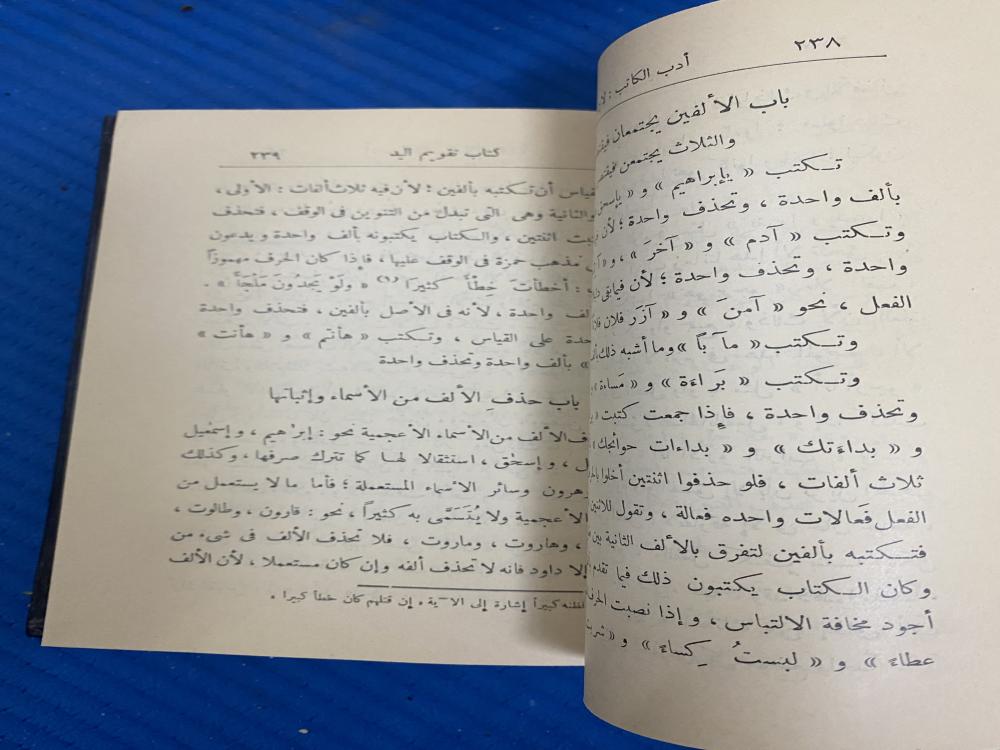 ٢٣٨
أدب الكاتب :
باب الألفين يجتمعان
والثلاث يجتمعن
تكتب « يإبراهيم » و «
بألف واحدة ، وتحذف واحدة ؛ لأن
وتكتب « آدم » و « آخرَ » ، و «
واحدة ، وتحذف واحدة ؛ لأن
الفعل ، نحو « آمنَ » و « آزَر فلان
وتكتب « مآباً » وما أشبه ذلك
وتكتب « بَراءَة » و « مَساءَة »
وتحذف واحدة ، فإذا جمعت كتبت
و « بداءَتك » و « بداءات حوائجك »
ثلاث ألفات ، فلو حذفوا اثنتين أخلوا
الفعل فَعالات واحده فعالة ، وتقول للاثنين
فتكتبه بألفين لتفرق بالألف الثانية بين
وكان الكتاب يكتبون ذلك فيما تقدم
أجود مخافة الالتباس ، وإذا نصبت الحرف
عطاءً » و « لبستُ كِساءً » و «
كتاب تقويم اليد
٢٣٩
أن تكتبه بألفين ؛ لأن فيه ثلاث ألفات : الأولى ،
والثانية وهى التى تبدل من التنوين فى الوقف ، فتحذف
اثنتين ، والكتاب يكتبونه بألف واحدة ويدعون
مذهب حمزة فى الوقف عليها ، فإذا كان الحرف مهموزاً
: أخطأتَ خِطأً كثيراً (١) « ولَوْ يَجِدُونَ مَلْجَأً » .
واحدة ، لأنه فى الأصل بألفين ، فتحذف واحدة
على القياس ، وتكتب « هأنتم » و « هأنت »
» بألف واحدة وتحذف واحدة
باب حذفِ الألف من الأسماء وإثباتها
الألف من الأسماء الأعجمية نحو : إبرٰهيم ، وإسمٰعيل
، وإسحٰق ، استثقالا لها كما تترك صرفها ، وكذلك
وسائر الأسماء المستعملة ؛ فأما ما لا يستعمل من
الأعجمية ولا يُتَسَمَّى به كثيراً ، نحو : قارون ، وطالوت ،
، وهاروت ، وماروت ، فلا تحذف الألف فى شىء من
إلا داود فانه لا تحذف ألفه وإن كان مستعملا ، لأن الألف
كبيراً إشارة إلى الآية . إن قتلهم كان خطأ كبيرا .